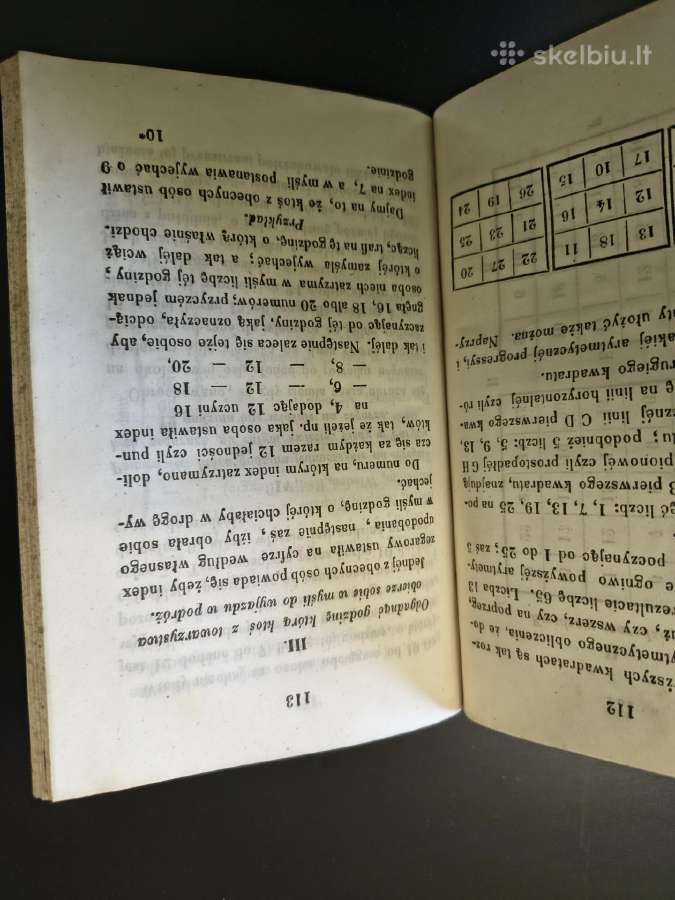 112
ższych kwadratach są tak roz-
ytmetycznego obliczenia, że do-
uż, czy wszerz, czy na, poprzeg,
rezultacie liczbę 65. Liczba 13
e ogniwo powyższéj arytmety-
poczynając od 1 do 25; zaś 5
ęć liczb: 1, 7, 13, 19, 25 na po-
B pierwszego kwadratu, znajdują,
pionowéj czyli prostopadłéj G H
tu; podobnież 5 liczb: 5, 9, 13,
znéj linii C D pierwszego kwa-
ę na linii horyzontalnéj czyli ró-
rugiego kwadratu.
akiéj arytmetycznéj progressyi, i
ty ułożyć także można. Naprzy-
13 18 11 22 27 20
12 14 16 21 23 25
17 10 15 26 19 24
113
III.
Odgadnąć godzinę którą ktoś z towarzystwa
obierze sobie w myśli do wyjazdu w podróż.
Jednéj z obecnych osób powiada się, żeby index
zegarowy ustawiła na cyfrze według własnego
upodobania, następnie zaś, iżby obrała sobie
w myśli godzinę, o któréj chciałaby w drogę wy-
jechać.
Do numeru, na którym index zatrzymano, doli-
cza się za każdym razem 12 jedności czyli pun-
któw, tak że jeżeli np. jaka osoba ustawiła index
na 4, dodając 12 uczyni 16
— 6, — 12 — 18
— 8, — 12 — 20,
i tak daléj. Następnie zaleca się tejże osobie, aby
zaczynając od téj godziny, jaką oznaczyła, odcią-
gnęła 16, 18 albo 20 numerów; przyczém jednak
osoba niech zatrzyma w myśli liczbę téj godziny,
o któréj zamyśla wyjechać; a tak daléj wciąż
licząc, trafi na tę godzinę, o którą właśnie chodzi.
Przykład.
Dajmy na to, że ktoś z obecnych osób ustawił
index na 7, a w myśli postanawia wyjechać o 9
godzinie.
10*
skelbiu.lt